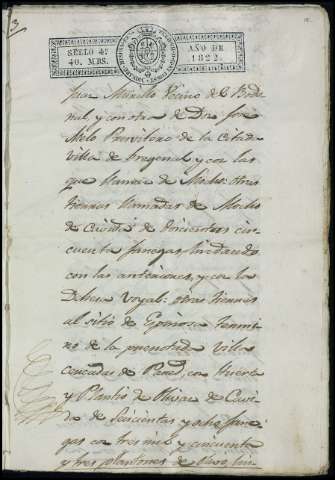 3
SELLO 4º
40. MRS.
AÑO DE
1822.
Juan Murillo Vecino de el Bode
nal, y con otra de Dn José
Melo Presvitero de la citada
Villa de Fregenal y con las
que llaman de Meches: otras
tierras llamadas de Meches
de Cavida de doscientas cin
cuenta fanegas, lindando
con las anteriores, y con la
Dehesa Royal: otras tierras
al sitio de Espinosa termi
no de la prenotada villa
cercadas de Pared, con huerta
y Plantio de Olivar de Cavi
da de Seiscientas y ocho fane
gas con tres mil y cincuenta
y tres plantones de olivo, lin